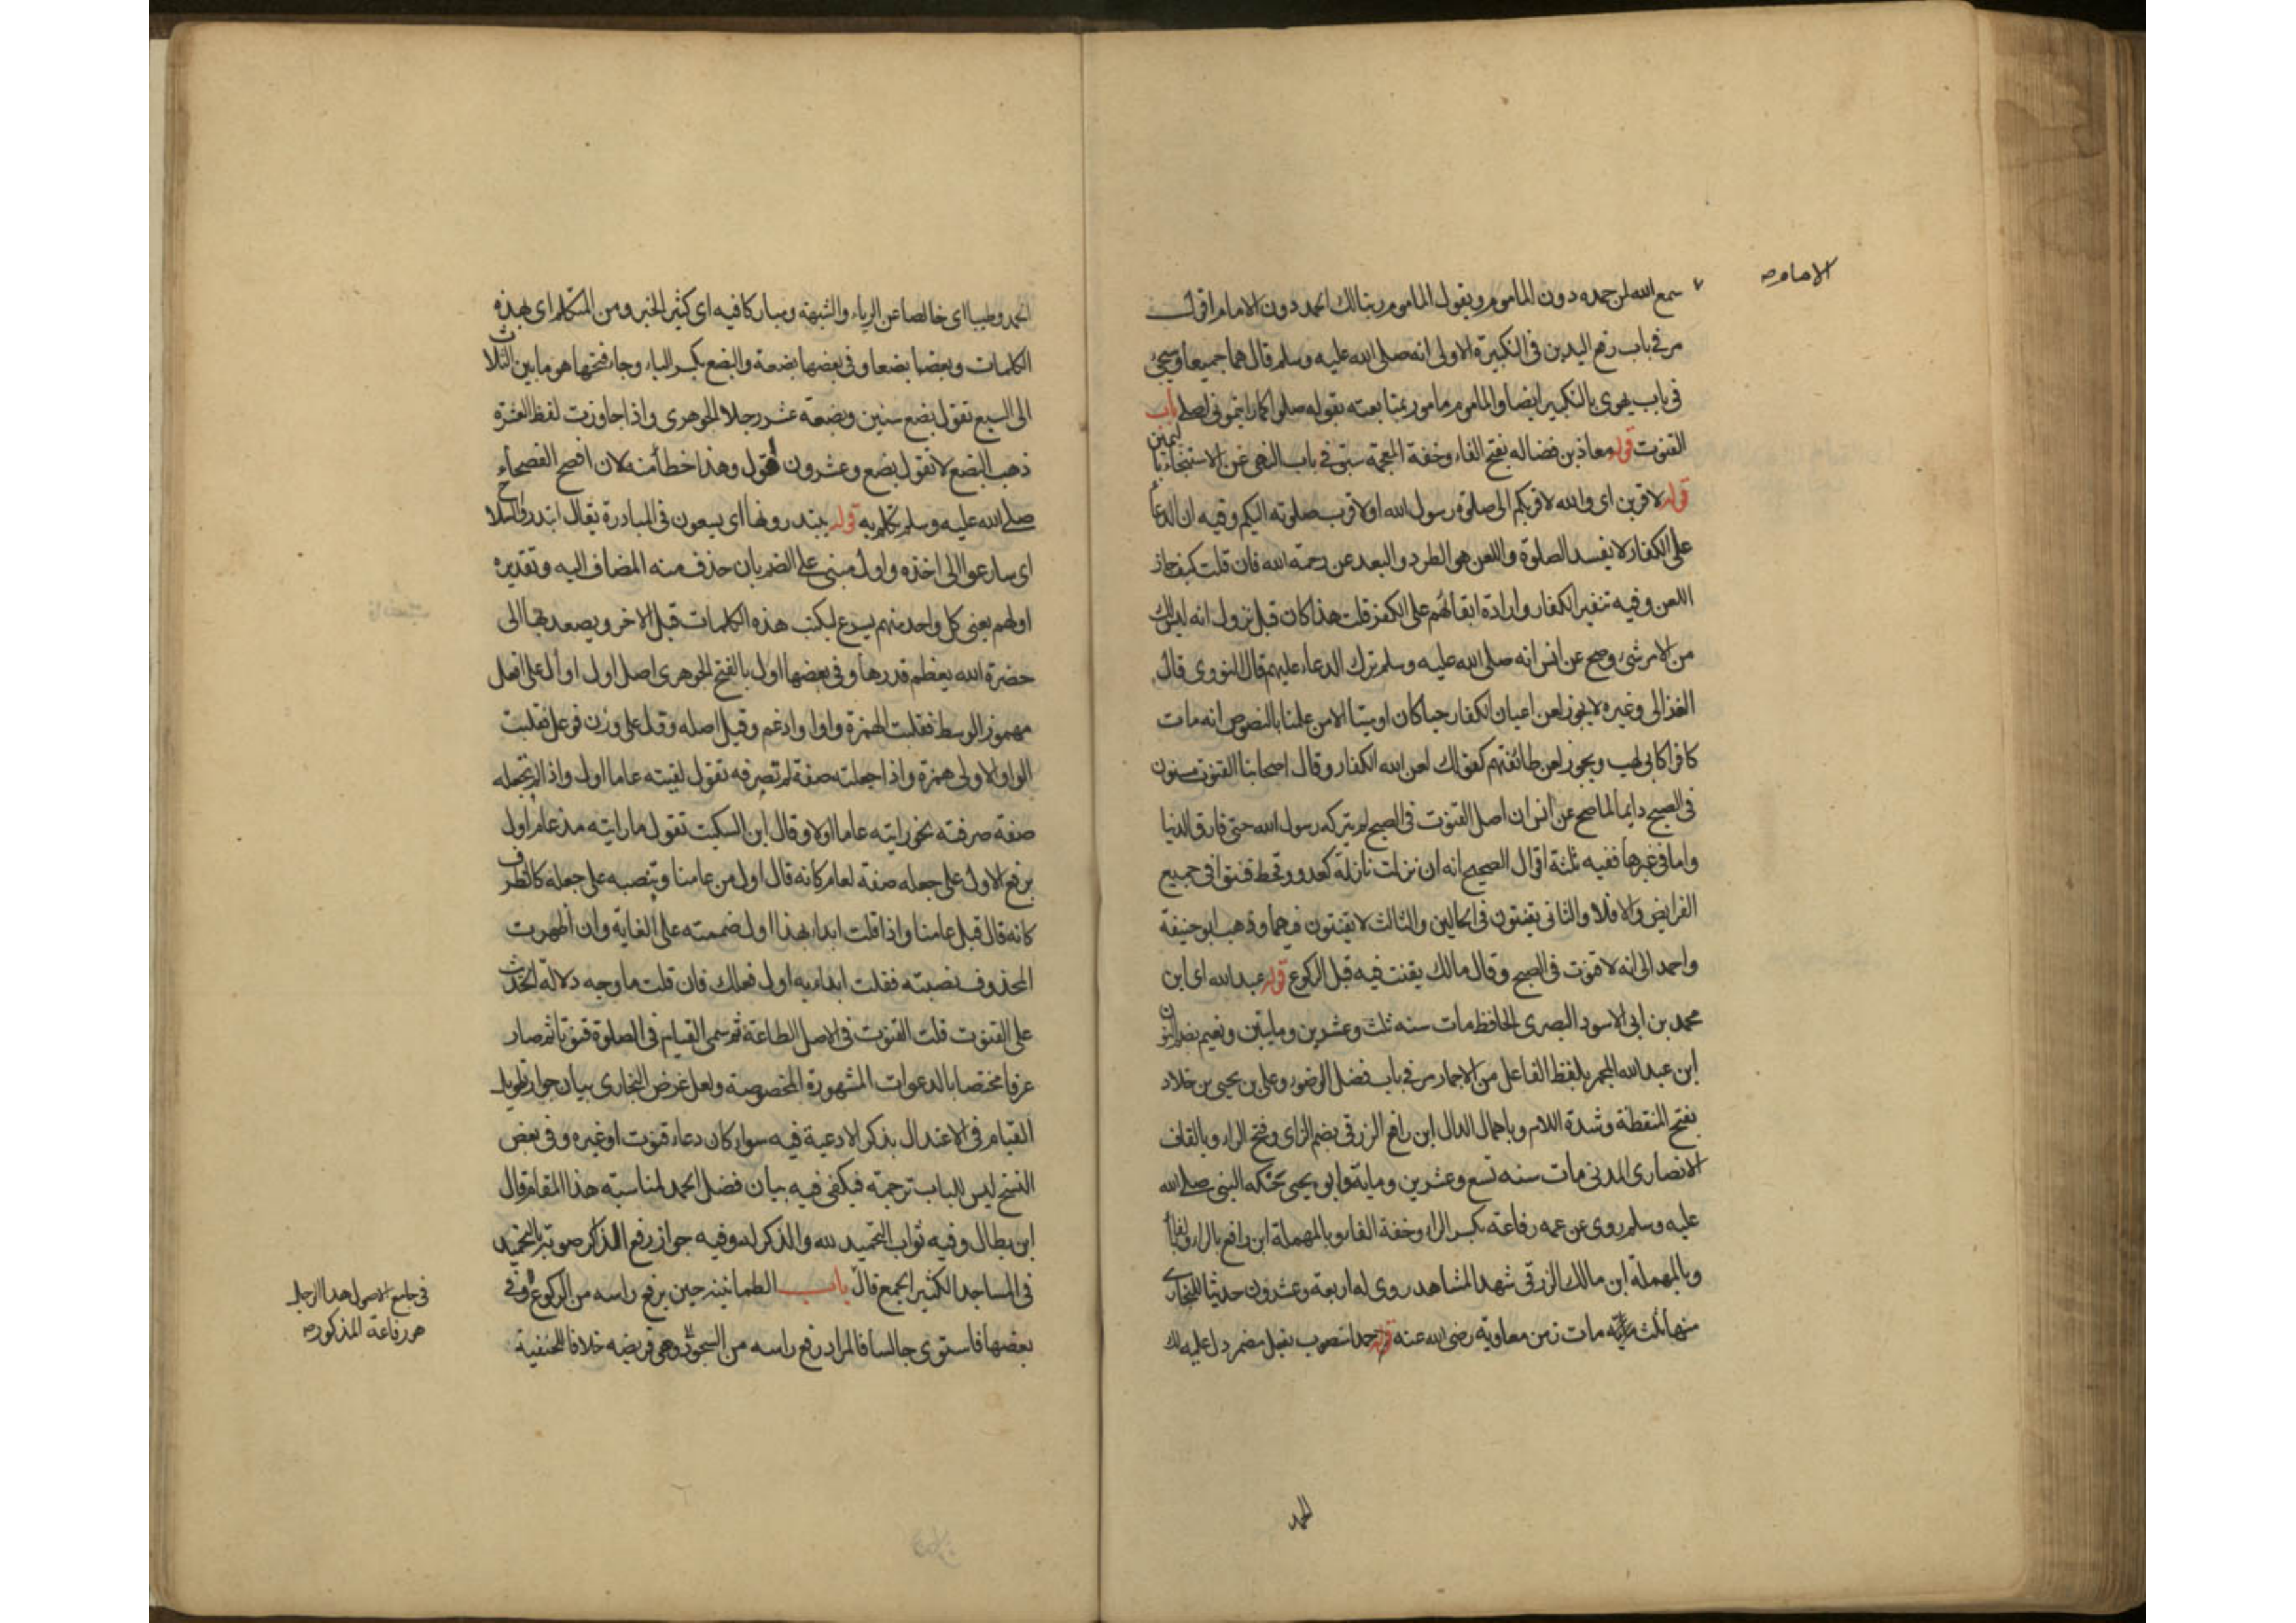 الامام صح
سمع الله لمن حمده دون الماموم ويقول الماموم ربنا لك الحمد دون الامام اقول
مر فى باب رفع اليدين فى التكبيرة الاولى انه صلى الله عليه وسلم قال هما جميعا وسيجئ
فى باب يهوى بالتكبير ايضا والماموم مامور بمتابعته بقوله صلوا كما رايتمونى اصلى باب
القنوت قوله معاذ بن فضاله بفتح الفاء وخفة المعجمة سبق فى باب النهى عن الاستنجاء باليمين
قوله لاقربن اى والله لاقربكم الى صلوة رسول الله او لاقرب صلوته اليكم وفيه ان الدعا
على الكفار لا يفسد الصلوة واللعن هو الطرد والبعد عن رحمة الله فان قلت كيف جاز
اللعن وفيه تنفير الكفار وارادة ابقائهم على الكفر قلت هذا كان قبل نزول انه ليس لك
من الامر شئ وصح عن انس انه صلى الله عليه وسلم ترك الدعاء عليهم قال النووى قال
الغزالى وغيره لا يجوز لعن اعيان الكفار حيا كان او ميتا الا من علمنا بالنصوص انه مات
كافرا كابى لهب ويجوز لعن طائفتهم كقولك لعن الله الكفار وقال اصحابنا القنوت مسنون
فى الصبح دايما لما صح عن انس ان اصل القنوت فى الصبح لم يتركه رسول الله حتى فارق الدنيا
واما فى غيرها ففيه ثلثة اقوال الصحيح انه ان نزلت نازلة كعدو وقحط قنتوا فى جميع
الفرايض والا فلا والثانى يقنتون فى الحالين والثالث لا يقنتون فيهما وذهب ابو حنيفة
واحمد الى انه لا قنوت فى الصبح وقال مالك يقنت فيه قبل الركوع قوله عبد الله اى ابن
محمد بن ابى الاسود البصرى الحافظ مات سنه ثلث وعشرين ومايتين ونعيم بضم النون
ابن عبد الله المجمر بلفظ الفاعل من الاجمار مر فى باب فضل الوضوء وعلى بن يحيى بن خلاد
بفتح المنقطة وشدة اللام وباهمال الدال ابن رافع الزرقى بضم الزاى وفتح الراء وبالقاف
الانصارى المدنى مات سنه تسع وعشرين وماية وابو يحيى حنكه النبى صلى الله
عليه وسلم روى عن عمه رفاعة بكسر الراء وخفة الفاء وبالمهملة ابن رافع بالراء وبالفاء
وبالمهملة ابن مالك الزرقى شهد المشاهد روى له اربعة وعشرون حديثا للبخارى
منها ثلثة مات زمن معاوية رضى الله عنه قوله حمدا منصوب بفعل مضمر دل عليه لك
الحمد
الحمد وطيبا اى خالصا عن الرياء والشبهة ومباركا فيه اى كثير الخير ومن المتكلم اى بهذه
الكلمات وبعضها بضعا وفى بعضها بضعة والبضع بكسر الباء وجاء فتحها هو ما بين الثلاث
الى السبع تقول بضع سنين وبضعة عشر رجلا الجوهرى واذا جاوزت لفظ العشرة
ذهب البضع لا تقول بضع وعشرون اقول وهذا خطأ منه لان افصح الفصحاء
صلى الله عليه وسلم تكلم به قوله يبتدرونها اى يسعون فى المبادرة يقال ابتدروا السلاح
اى سارعوا الى اخذه واول مبنى على الضم بان حذف منه المضاف اليه وتقديره
اولهم يعنى كل واحد منهم يسرع ليكتب هذه الكلمات قبل الاخر ويصعد بها الى
حضرة الله يعظم قدرها وفى بعضها اول بالفتح الجوهرى اصل اول اوأل على افعل
مهموز الوسط فقلبت الهمزة واوا وادغم وقيل اصله وول على وزن فوعل فقلبت
الواو الاولى همزة واذا جعلته صفة لم تصرفه تقول لقيته عاما اول واذا لم تجعله
صفة صرفته نحو رايته عاما اولا وقال ابن السكيت تقول ما رايته مذ عام اول
برفع الاول على جعله صفة لعام كانه قال اول من عامنا وبنصبه على جعله كالظرف
كانه قال قبل عامنا واذا قلت ابدا بهذا اول ضممته على الغاية وان اظهرت
المحذوف نصبته فقلت ابدا به اول فعلك فان قلت ما وجه دلالة الحديث
على القنوت قلت القنوت فى الاصل الطاعة ثم سمى القيام فى الصلوة قنوتا ثم صار
عرفا مختصا بالدعوات المشهورة المخصوصة ولعل غرض البخارى بيان جواز تطويل
القيام فى الاعتدال بذكر الادعية فيه سواء كان دعاء قنوت او غيره وفى بعض
النسخ ليس للباب ترجمة فيكفى فيه بيان فضل الحمد لمناسبته هذا المقام قال
ابن بطال وفيه ثواب التحميد لله والذكر له وفيه جواز رفع الذاكر صوته بالتحميد
فى المساجد الكثير الجمع قال باب الطمانينه حين يرفع راسه من الركوع وفى
بعضها فاستوى جالسا فالمراد رفع راسه من السجود وهى فريضه خلافا للحنفية
فى جامع الاصول هذا الرجل
هو رفاعة المذكور صح